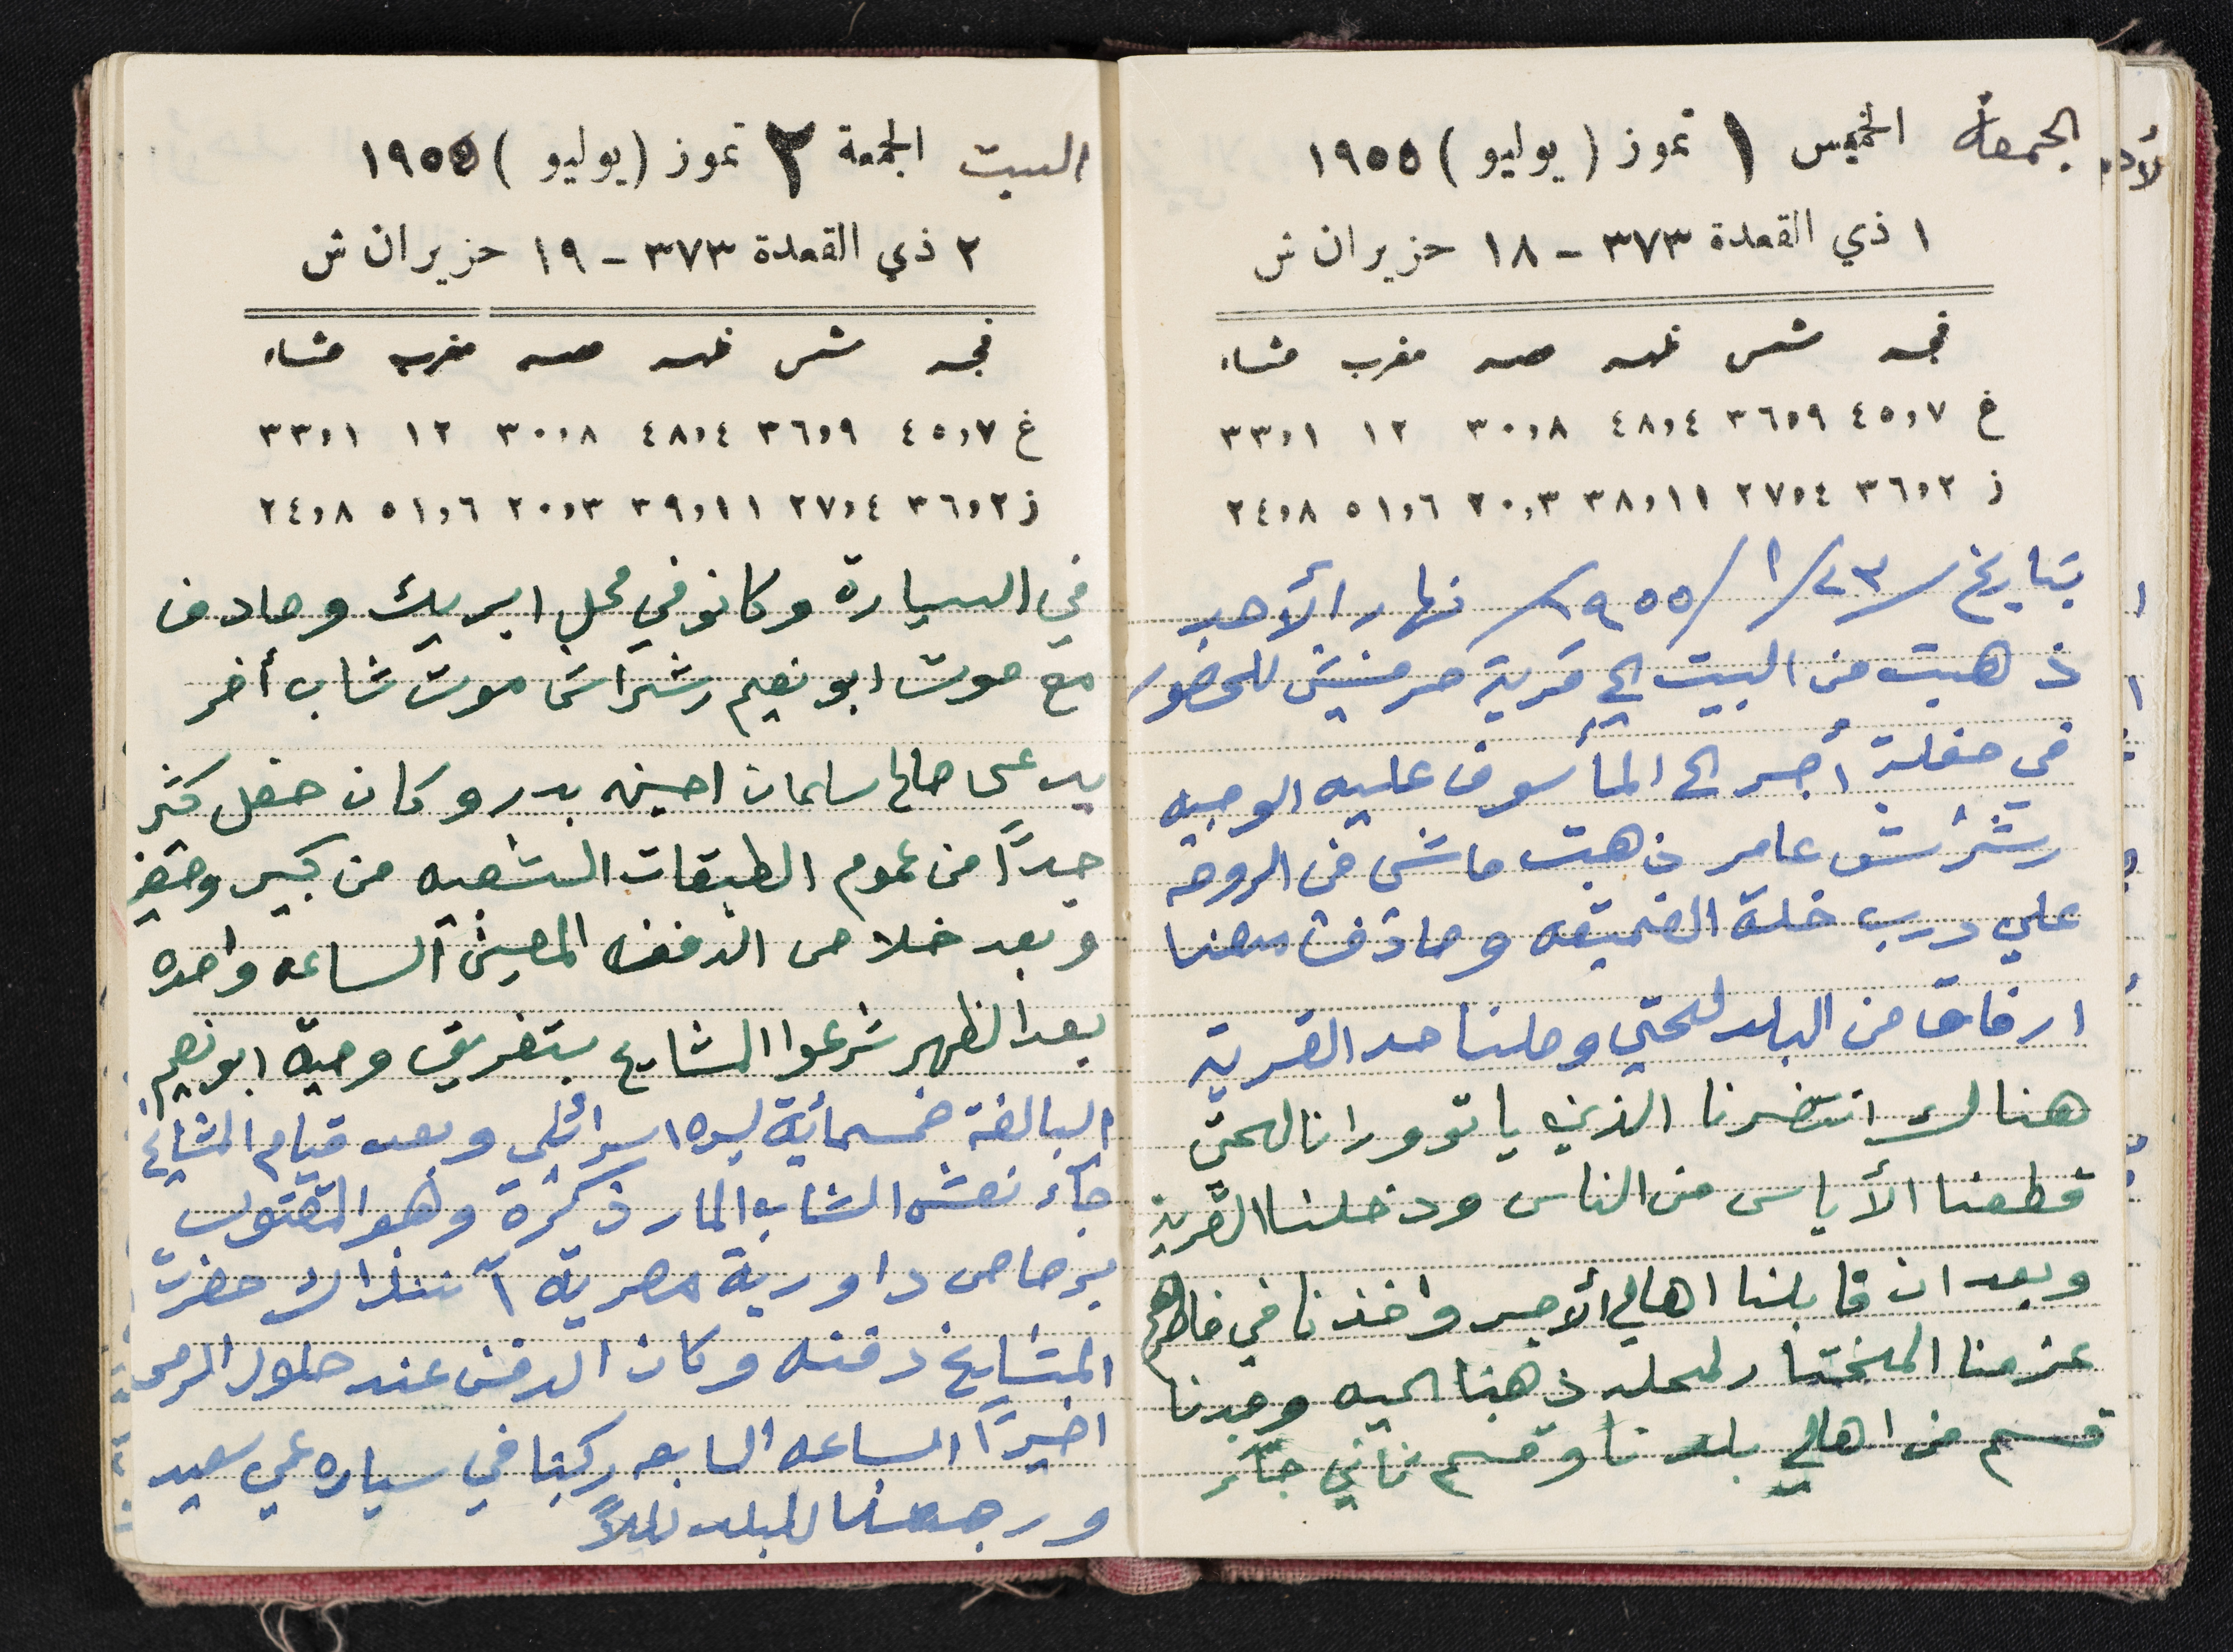 الجمعة الخميس ١ تموز (يوليو) ١٩٥٥
١ ذي القعدة ٣٧٣ - ١٨ حزيران ش
فجر شمس ظهر عصر مغرب عشاء
غ ٤٥,٧ ٣٦,٩ ٤٨,٤ ٣٠,٨ ١٢ ٣٣,١
ز ٣٦,٢ ٢٧,٤ ٣٨,١١ ٢٠,٣ ٥١,٦ ٢٤,٨
بتاريخ ٢٣/١/١٩٥٥ نهار الأحد
ذهبت من البيت الي قرية حرفيش للحضور
في حفلة أجر الى المأسوف عليه الوجيه
رشراش عامر ذهبت ماشى في الروحه
علي درب خلة العميقه وصادفت معنا
ارفاق من البلد لحتي وصلنا حد القرية
هنالك انتضرنا الذين ياتو ورانا لحتى
قطعنا الأياس من الناس ودخلنا القرية
وبعد ان قابلنا اهالي الأجر واخذنا في خاطرهم
عزمنا المختار لمحله ذهبنا اليه وجدنا
قسم من اهالي بلدنا وقسم ثاني جائر
السبت الجمعة ٢ تموز (يوليو) ١٩٥٥
٢ ذي القعدة ٣٧٣ - ١٩ حزيران ش
فجر شمس ظهر عصر مغرب عشاء
غ ٤٥,٧ ٣٦,٩ ٤٨,٤ ٣٠,٨ ١٢ ٣٣,١
ز ٣٦,٢ ٢٧,٤ ٣٩,١١ ٢٠,٣ ٥١,٦ ٢٤,٨
في السيارة وكانو في محل ابريك وصادف
مع موت ابو نعيم رشراش موت شاب أخر
يدعى صالح سلمان احسين بدر وكان حفل كثير
جداً من عموم الطبقات الشعبه من كبير وصغير
وبعد خلاص الدفنه المعين الساعه واحده
بعد الظهر شرعوا المشايخ بتفريق وصية ابو نعيم
البالغة خمسمائة ليره اسرائلي وبعد قيام المشايخ
جاء نعش الشاب المار ذكره وهو المقتول
برصاص داورية مصرية آننذاك حضرت
المشايخ دفنه وكان الدفن عند حلول
اخيراً الساعه السابعه ركبنا في سياره عمي سعيد
ورجعنا للبلد ليلاً